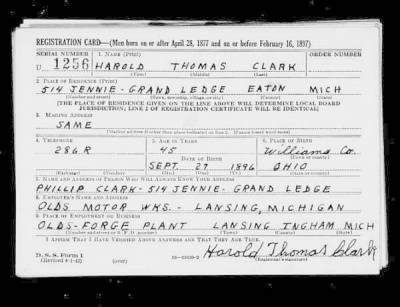 REGISTRATION CARD—(Men born on or after April 28, 1877 and on or before February 16, 1897)
SERIAL NUMBER 1. NAME (Print) ORDER NUMBER
U 1256 HAROLD THOMAS CLARK
(First) (Middle) (Last)
2. PLACE OF RESIDENCE (Print)
514 JENNIE - GRAND LEDGE EATON MICH
(Number and street) (Town, township, village, or city) (County) (State)
[THE PLACE OF RESIDENCE GIVEN ON THE LINE ABOVE WILL DETERMINE LOCAL BOARD
JURISDICTION; LINE 2 OF REGISTRATION CERTIFICATE WILL BE IDENTICAL]
3. MAILING ADDRESS
SAME
[Mailing address if other than place indicated on line 2. If same insert word same]
4. TELEPHONE 5. AGE IN YEARS 6. PLACE OF BIRTH
286R 45 Williams Co.
DATE OF BIRTH (Town or county)
SEPT. 27 1896 OHIO
(Exchange) (Number) (Mo.) (Day) (Yr.) (State or country)
7. NAME AND ADDRESS OF PERSON WHO WILL ALWAYS KNOW YOUR ADDRESS
PHILLIP CLARK - 514 JENNIE - GRAND LEDGE
8. EMPLOYER'S NAME AND ADDRESS
OLDS MOTOR WKS. - LANSING, MICHIGAN
9. PLACE OF EMPLOYMENT OR BUSINESS
OLDS - FORGE PLANT LANSING INGHAM MICH
(Number and street or R. F. D. number) (Town) (County) (State)
I AFFIRM THAT I HAVE VERIFIED ABOVE ANSWERS AND THAT THEY ARE TRUE.
D. S. S. Form 1
(Revised 4-1-42) (over) Harold Thomas Clark
(Registrant's signature)